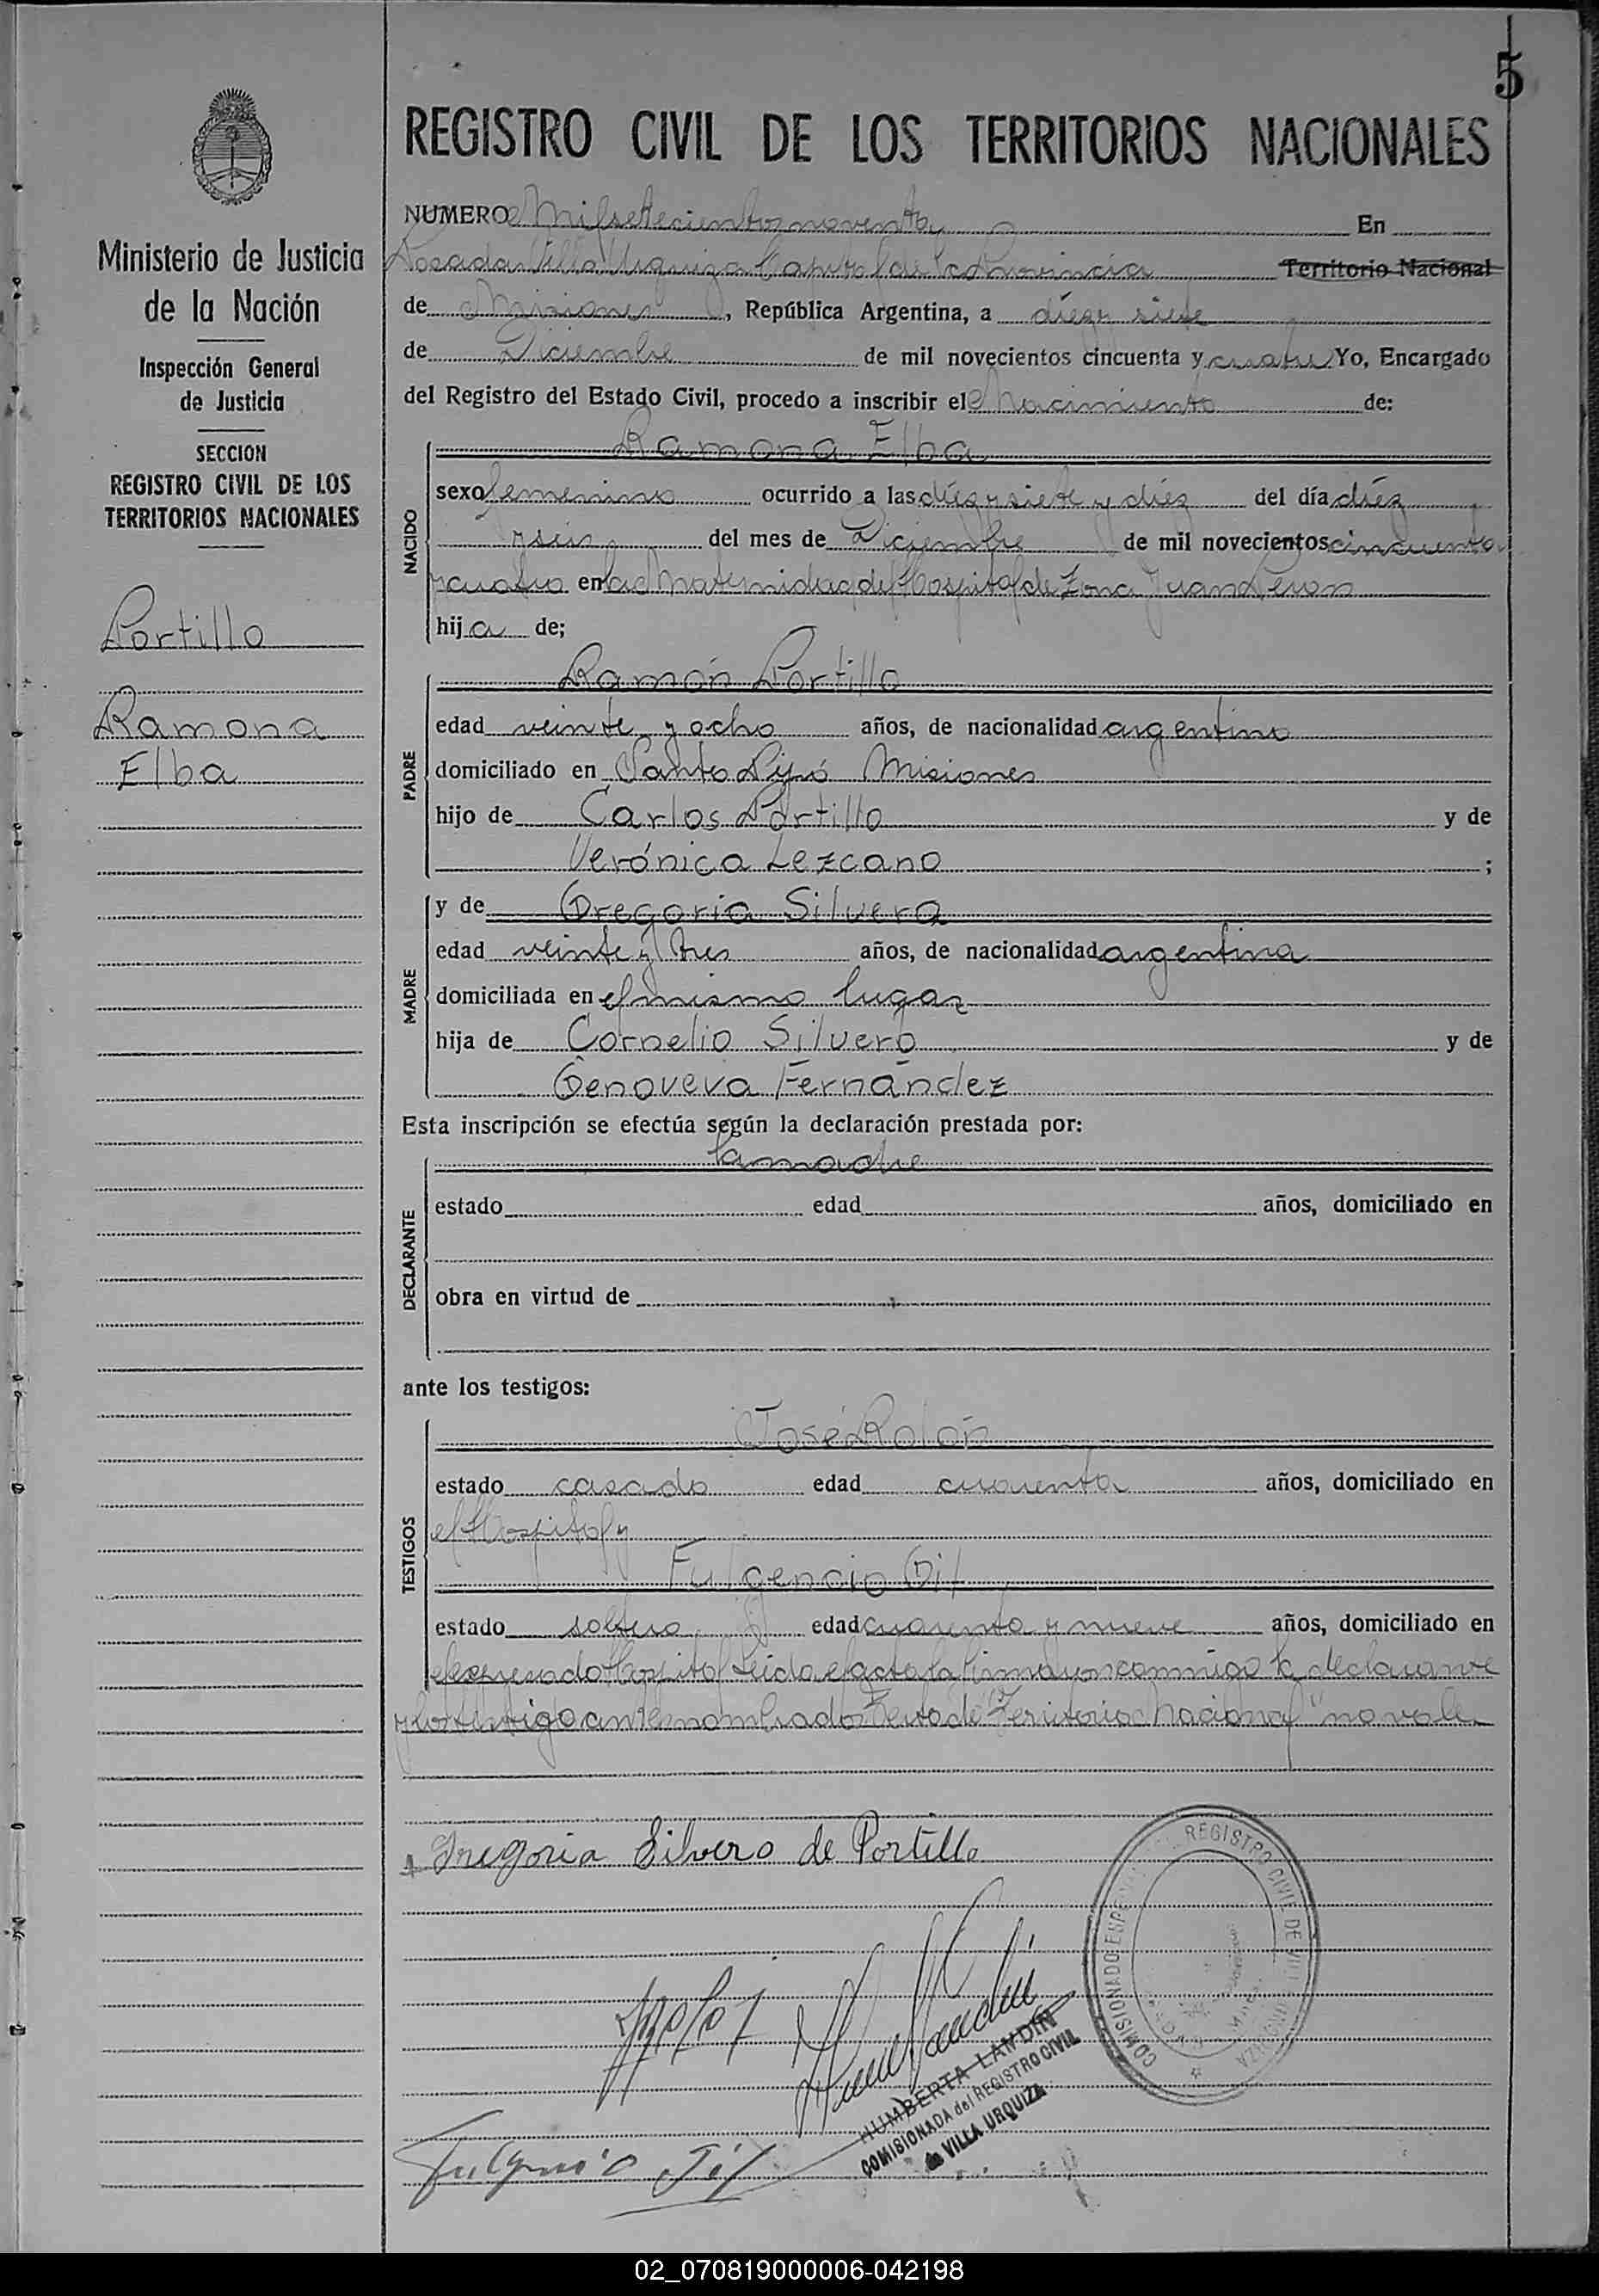 5
Ministerio de Justicia
de la Nación
Inspección General
de Justicia
SECCION
REGISTRO CIVIL DE LOS
TERRITORIOS NACIONALES
Portillo
Ramona
Elba
REGISTRO CIVIL DE LOS TERRITORIOS NACIONALES
NUMERO Mil setecientos noventa En
Posadas Villa Urquiza Capital de la Provincia Territorio Nacional
de Misiones, República Argentina, a diez y siete
de Diciembre de mil novecientos cincuenta y cuatro Yo, Encargado
del Registro del Estado Civil, procedo a inscribir el Nacimiento de:
NACIDO
Ramona Elba
sexo femenino ocurrido a las diez y siete y diez del día diez
y seis del mes de Diciembre de mil novecientos cincuenta
y cuatro en la Maternidad del Hospital de Zona Juan Perón
hija de;
PADRE
Ramón Portillo
edad veinte y ocho años, de nacionalidad argentino
domiciliado en Santo Pipó Misiones
hijo de Carlos Portillo y de
Verónica Lezcano ;
MADRE
y de Gregoria Silvera
edad veinte y tres años, de nacionalidad argentina
domiciliada en el mismo lugar
hija de Cornelio Silvero y de
Genoveva Fernández
Esta inscripción se efectúa según la declaración prestada por:
DECLARANTE
la madre
estado edad años, domiciliado en
obra en virtud de
ante los testigos:
TESTIGOS
José Rolón
estado casado edad cuarenta años, domiciliado en
el Hospital y
Fulgencio Gil
estado soltero edad cuarenta y nueve años, domiciliado en
el expresado Hospital Leida el acta la firmaron conmigo la declarante
y los testigo antes nombrados Testado "Territorio Nacional" no vale
Gregoria Silvero de Portillo
HUMBERTA LANDIN
COMISIONADA del REGISTRO CIVIL
de VILLA URQUIZA
COMISIONADO REGISTRO CIVIL DE
Fulgencio Gil
02_070819000006-042198